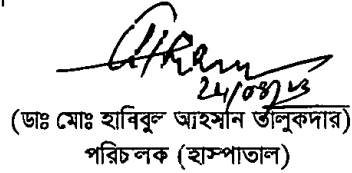 24/08/23
(ডাঃ মোঃ হাবিবুল আহসান তালুকদার)
পরিচালক (হাসপাতাল)